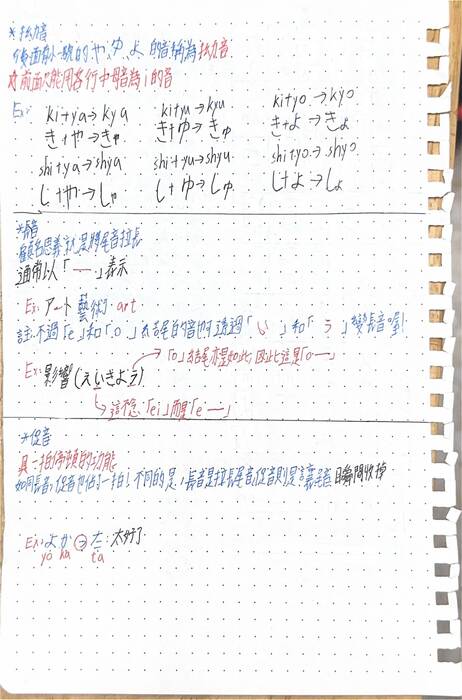 *拗音
後面有小號的や、ゆ、よ的音稱為拗音
前面只能用各行中母音為i的音
Ex:
ki+ya→kya  ki+yu→kyu  ki+yo→kyo
き+や→きゃ  き+ゆ→きゅ  き+よ→きょ
shi+ya→shya  shi+yu→shyu  shi+yo→shyo
し+や→しゃ  し+ゆ→しゅ  し+よ→しょ
*長音
顧名思義就是將尾音拉長
通常以「ー」表示
Ex: アート 藝術. art
註:不過「e」和「o」為結尾的音也可透過「い」和「う」變長音喔!
「o」結尾亦是如此,因此這是「oー」
Ex: 影響(えいきょう)
這不唸「ei」而是「eー」
*促音
具一拍停頓的功能
如同長音,促音也佔一拍!不同的是,長音是拉長尾音,促音則是讓尾音瞬間收掉
Ex: よかった:太好了
yo ka ta